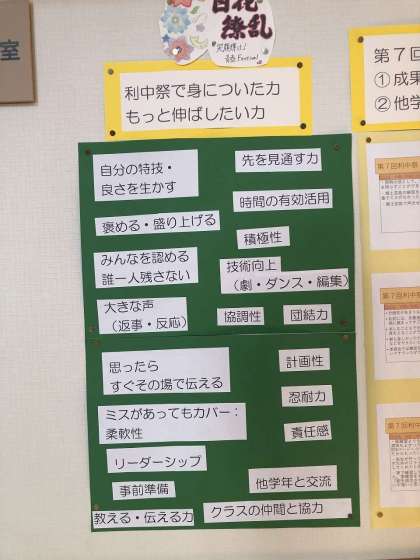 室
百花
繚乱
笑顔輝け!
青春Festival
利中祭で身についた力
もっと伸ばしたい力
自分の特技・
良さを生かす
先を見通す力
時間の有効活用
褒める・盛り上げる
積極性
みんなを認める
誰一人残さない
技術向上
（劇・ダンス・編集）
大きな声
（返事・反応）
協調性
団結力
思ったら
すぐその場で伝える
計画性
忍耐力
ミスがあってもカバー：
柔軟性
責任感
リーダーシップ
事前準備
他学年と交流
教える・伝える力
クラスの仲間と協力
第７回
①成果
②他学
第７回利中祭
第７回利中祭
第７回利中